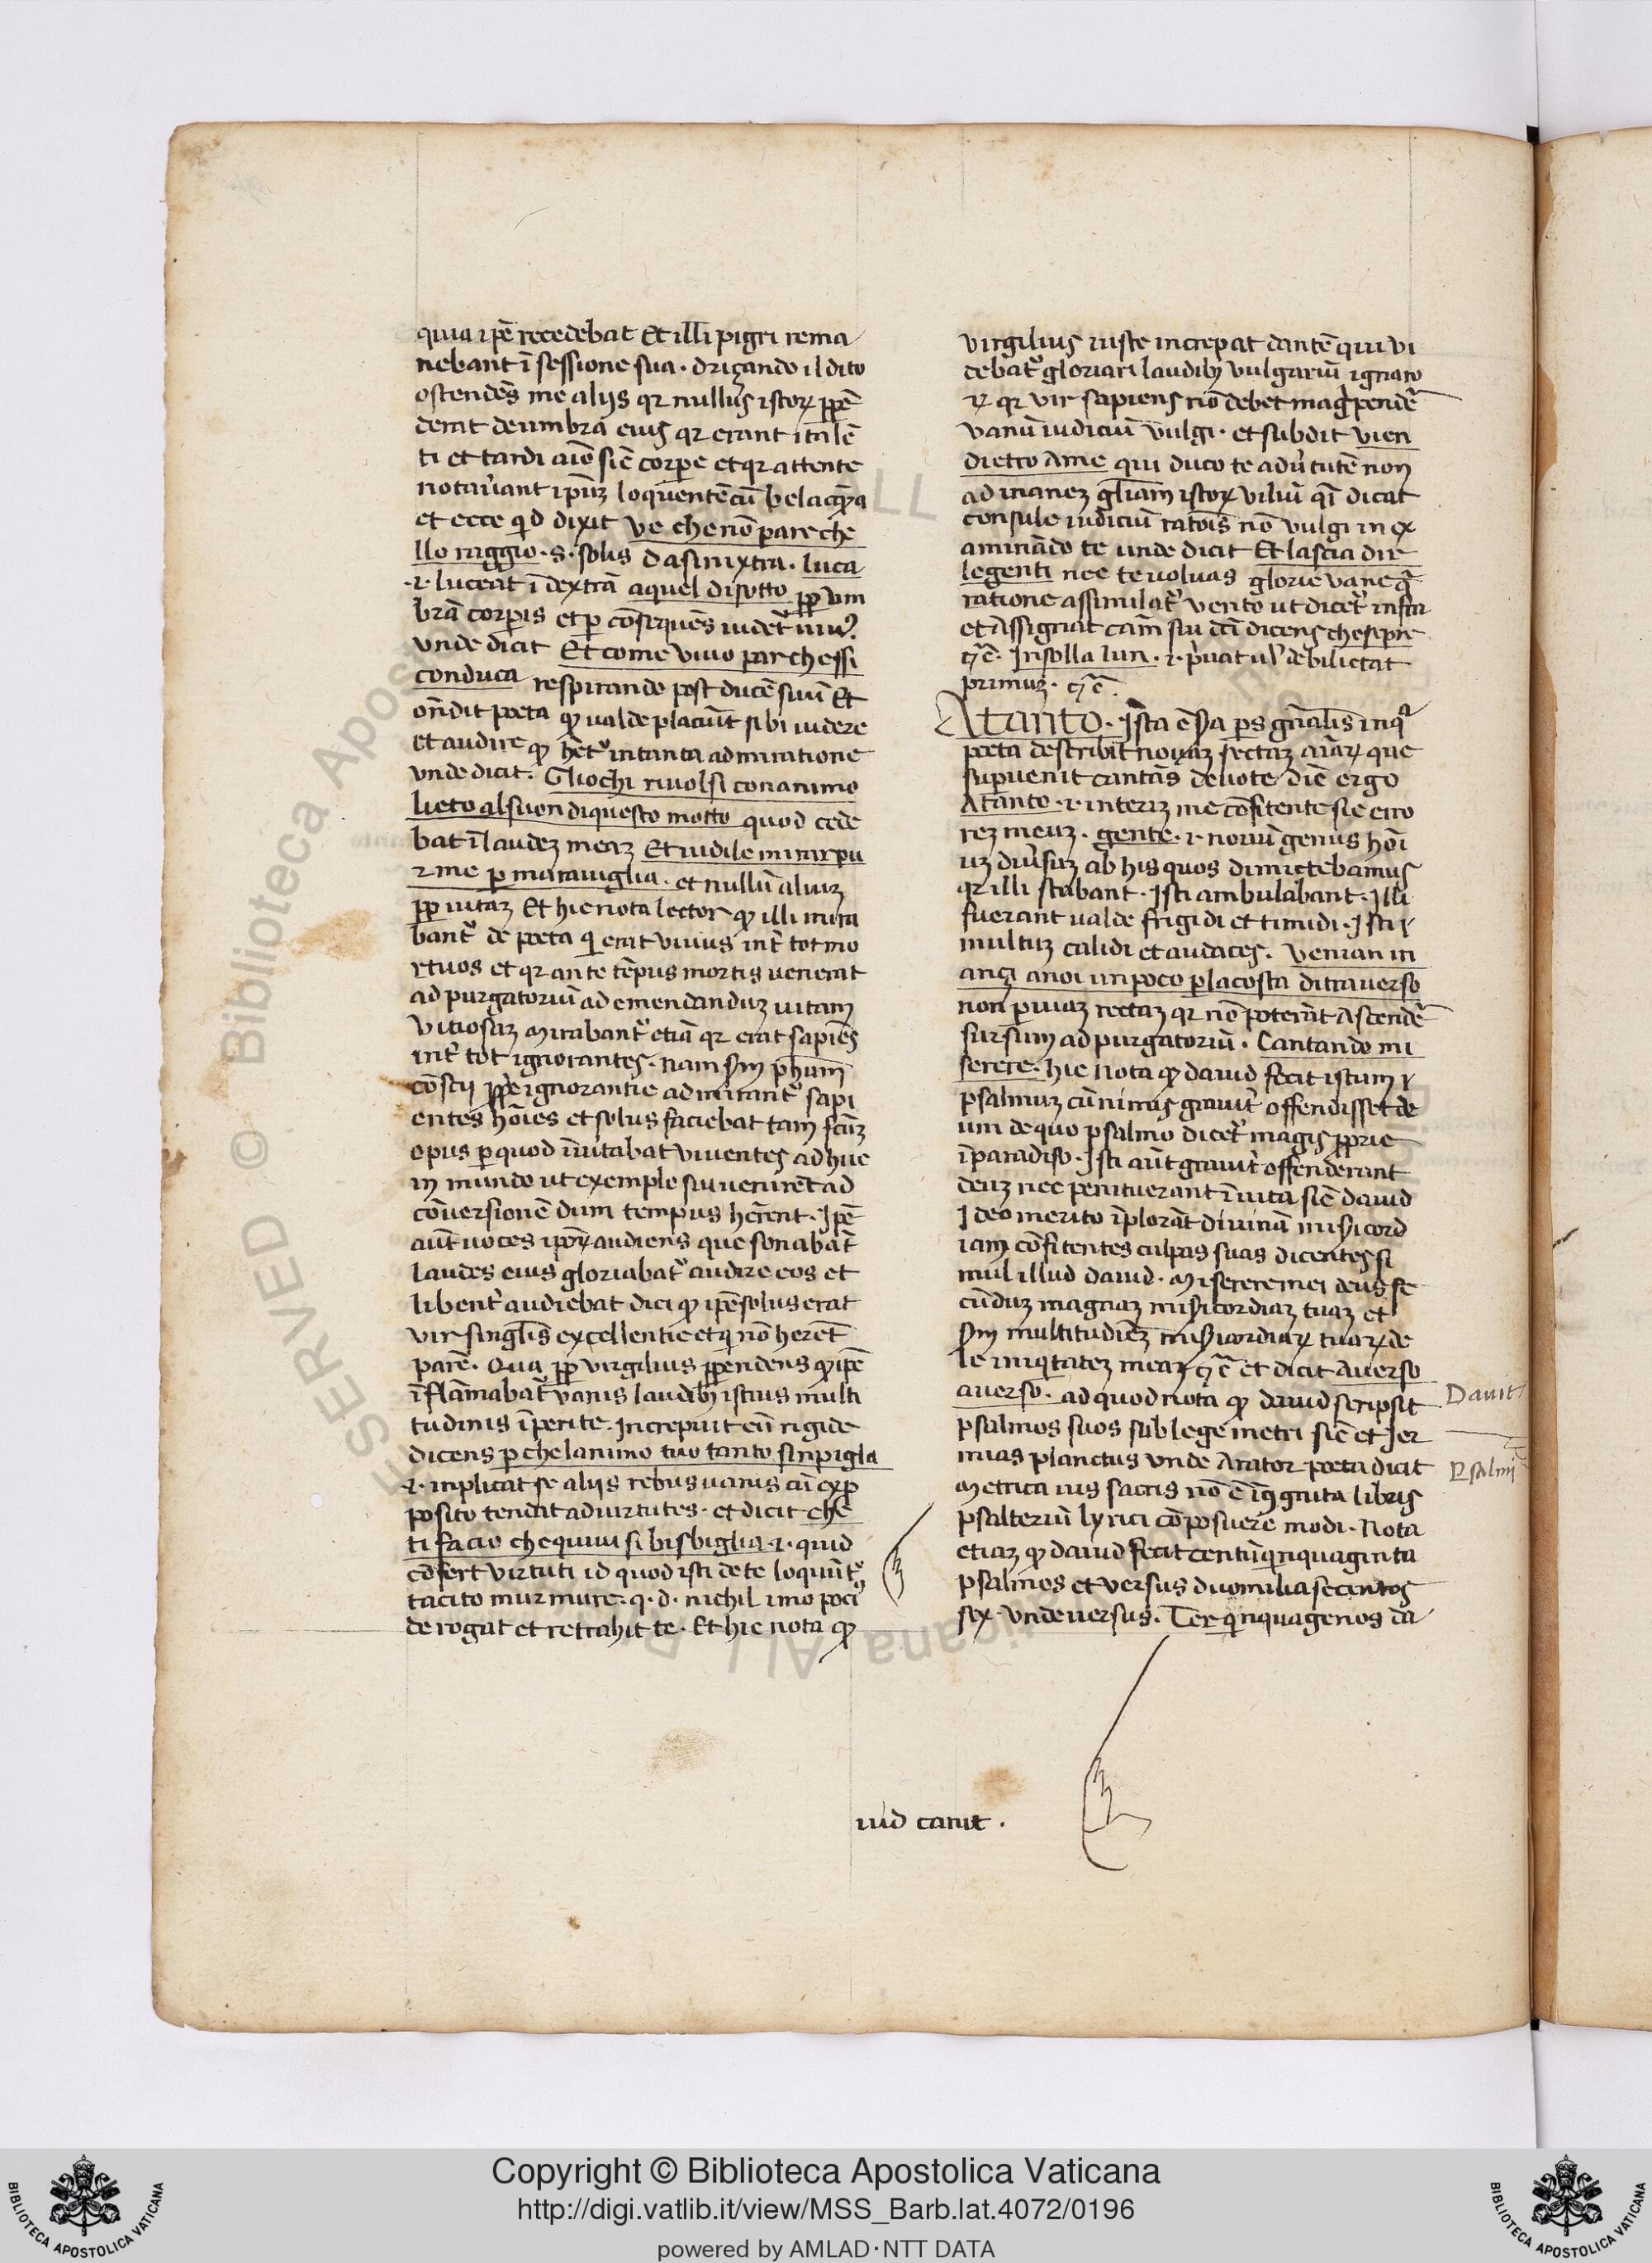 quia ipẽ recedebat Et illi pigri rema
nebant ĩ sessione sua · drizando il dito
ostendẽs me aliis qr nullus istoꝝ ꝑpẽ
derat de umbra eius qr erant ita lẽ
ti et tardi aĩo siĉ corpe et qr attente
notauant ipuꝫ loquentẽ cũ belacqua
et ecce qid dixit ve che nõ pare che
llo raggio · s · solis da sinixtra · luca
·i· luceat ĩ dextrã a quel di sotto ꝓp um
brã corpis et ꝑ cõsequẽs uidet᷑ uiuꝰ
unde dicit Et come uiuo par chessi
conduca respirando post ducẽ suũ Et
oñdit poeta ꝙ ualde placiũt sibi uidere
et audire ꝙ het᷑ in tanta admiratione
unde dicit · Gliochi riuolsi con animo
lieto al suon di questo motto quod cede
bat ĩ laudeꝫ meaꝫ Et uidile mirar pu
r me ꝑ marauiglia · et nullũ aliuꝫ
ꝓp uitaꝫ Et hic nota lector ꝙ illi mira
bant᷑ de poeta qi erat uiuus int̃ tot mo
rtuos et qr ante tẽpus mortis uenerat
ad purgatoriũ ad emendanduꝫ uitam
uitiosaꝫ mirabant᷑ etiã qr erat sapiẽs
int̃ tot ignorantes · nam sm phum
cõscii ꝓpe ignorantie admirant᷑ sapi
entes hoĩes et solus faciebat tam scũꝫ
opus ꝑ quod ĩuitabat viuentes adhuc
in mundo ut exemplo sui uenirẽt ad
cõuersionẽ dum tempus herẽnt · Ipẽ
aut uoces ipoꝝ audiens que sonabãt
laudes eius gloriabat᷑ audire eos et
libent̃ audiebat dici ꝙ ipẽ solus erat
vir singlis excellentie et qi nõ herẽt
parẽ · Qua ꝓp virgilius ꝓpendens ꝙ ipẽ
ĩflãmabat᷑ vanis laudibꝫ istius multi
tudinis ĩperite · Increpuit eũ rigide
dicens ꝑ che lanimo tuo tanto sinpigla
·i· inplicat se aliis rebus uanis cũ ex ꝓ
posito tendat ad uirtutes · et dicit che
ti facio che quiui si bisbiglia ·i· quid
cõfert virtuti id quod isti de te loquũt᷑
tacito murmure · q · d · nichil imo poci᷑
derogat et retrahit te · Et hic nota ꝙ
virgilius iuste increpat dantẽ qui vi
debat᷑ gloriari laudibꝫ vulgariũ ignaro
ꝝ qr vir sapiens nõ debet magipendẽ
vanũ iudiciũ vulgi · et subdit vien
dietro ame qui duco te ad ũtutẽ non
ad inaneꝫ gliam istoꝝ viliũ qĩ dicat
consule iudiciũ ratõis nõ vulgi in ex
aminãdo te unde dicit Et lascia dir
legenti nec te uoluas glorie vane q̃
ratione assimilat᷑ vento ut dicet᷑ infra
et assignat cam sui dc̃i dicens che sipre
⁊c̃ · Insolla lun · i · priuat ul debilictat
primuꝫ · ⁊c̃
Atanto · Ista ẽ 3a ps gñalis in q᷑
poeta describit nouaꝫ sectaꝫ aiaꝝ que
supuenit cantãs deuote dic̃ ergo
Atanto ·i· interiꝫ me cõfitente sic erro
reꝫ meuꝫ · gente ·i· nouũ genus hoĩ
uꝫ diũsuꝫ ab his quos dimictebamus
qr illi stabant · Isti ambulabant · Illi
fuerant ualde frigidi et timidi · Isti ꝛ
multuꝫ calidi et audaces · Venian in
anzi anoi un poco ꝑ la costa di trauerso
non ꝑ uiaꝫ rectaꝫ qr nõ poterãt ascendẽ
sursum ad purgatoriũ · Cantando mi
serere · hic nota ꝙ dauid fecit istum ꝛ
psalmuꝫ cũ nimis grauit̃ offendisset de
um de quo psalmo dicet᷑ magis ꝓprie
ĩ paradiso · Isti aut grauit̃ offenderant
deuꝫ nec penituerant ĩ uita siĉ dauid
Ideo merito ĩplorãt diuinã misicord
iam cõfitentes culpas suas dicentes si
mul illud dauid · Miserere mei deus se
cũduꝫ magnaꝫ misicordiaꝫ tuaꝫ et
sm multitudineꝫ misicordiaꝝ tuaꝝ de
le iniqitateꝫ meaꝫ ⁊c̃ et dicit auerso
auerso · ad quod nota ꝙ dauid scripsit
psalmos suos sub lege metri siĉ et Jer
mias planctus unde Arator poeta dicit
metrica uis sacris nõ ẽ ĩcognita libris
psalteriũ lyrici cõposuere modi · Nota
etiaꝫ ꝙ dauid fecit centũ qinquaginta
psalmos et versus duomilia secentos
sex · unde uersus · Ter qinquagenos da
uid canit ·
Dauit
Psalmi
Copyright © Biblioteca Apostolica Vaticana
http://digi.vatlib.it/view/MSS_Barb.lat.4072/0196
powered by AMLAD·NTT DATA
BIBLIOTECA APOSTOLICA VATICANA
BIBLIOTECA APOSTOLICA VATICANA